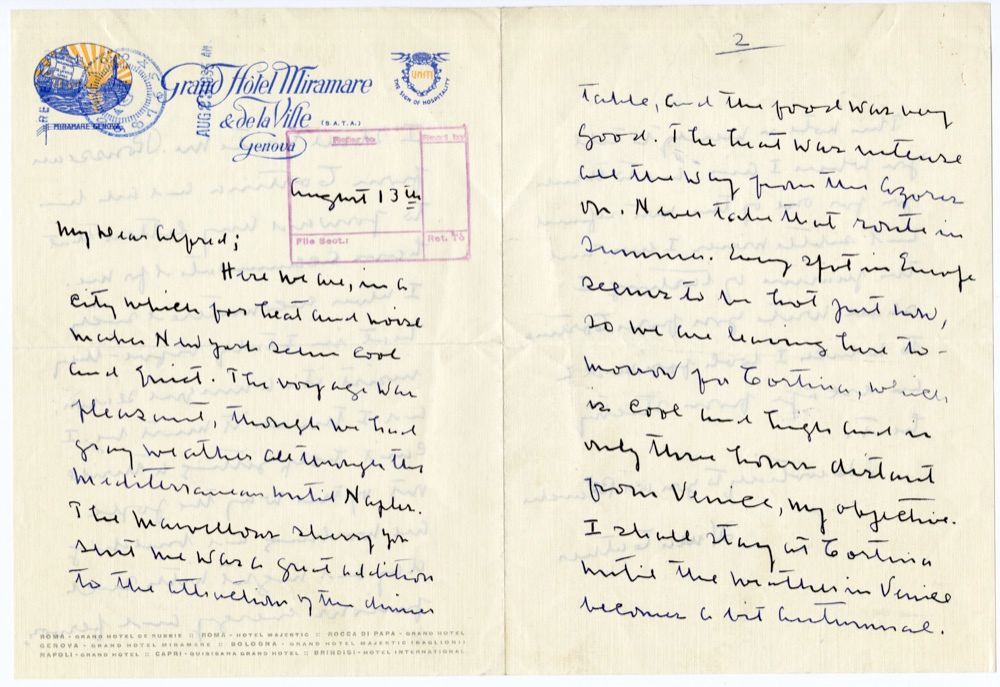 Grand Hôtel Miramare
& de la Ville (S.A.T.A.)
Genova
MIRAMARE GENOVA
UNITI
THE SIGN OF HOSPITALITY
Refer to
Read by
File Sect.:
Ret. to
August 13th
My Dear Alfred;
Here we are, in a
city which for heat and noise
makes New York seem cool
and quiet. The voyage was
pleasant, though we had
gray weather all through the
Mediterranean until Naples.
The marvellous sherry you
sent me was a great addition
to the attraction of the dinner
ROMA - GRAND HOTEL DE RUSSIE :: ROMA - HOTEL MAJESTIC :: ROCCA DI PAPA - GRAND HOTEL
GENOVA - GRAND HOTEL MIRAMARE :: BOLOGNA - GRAND HOTEL MAJESTIC (BAGLIONI)
NAPOLI - GRAND HOTEL :: CAPRI - QUISISANA GRAND HOTEL :: BRINDISI - HOTEL INTERNATIONAL
2
table, and the food was very
good. The heat was intense
all the way from the Azores
on. Never take that route in
Summer. Every spot in Europe
seems to be hot just now,
so we are leaving here to-
morrow for Cortina, which
is cool and high and is
only three hours distant
from Venice, my objective.
I shall stay at Cortina
until the weather in Venice
becomes a bit autumnal.